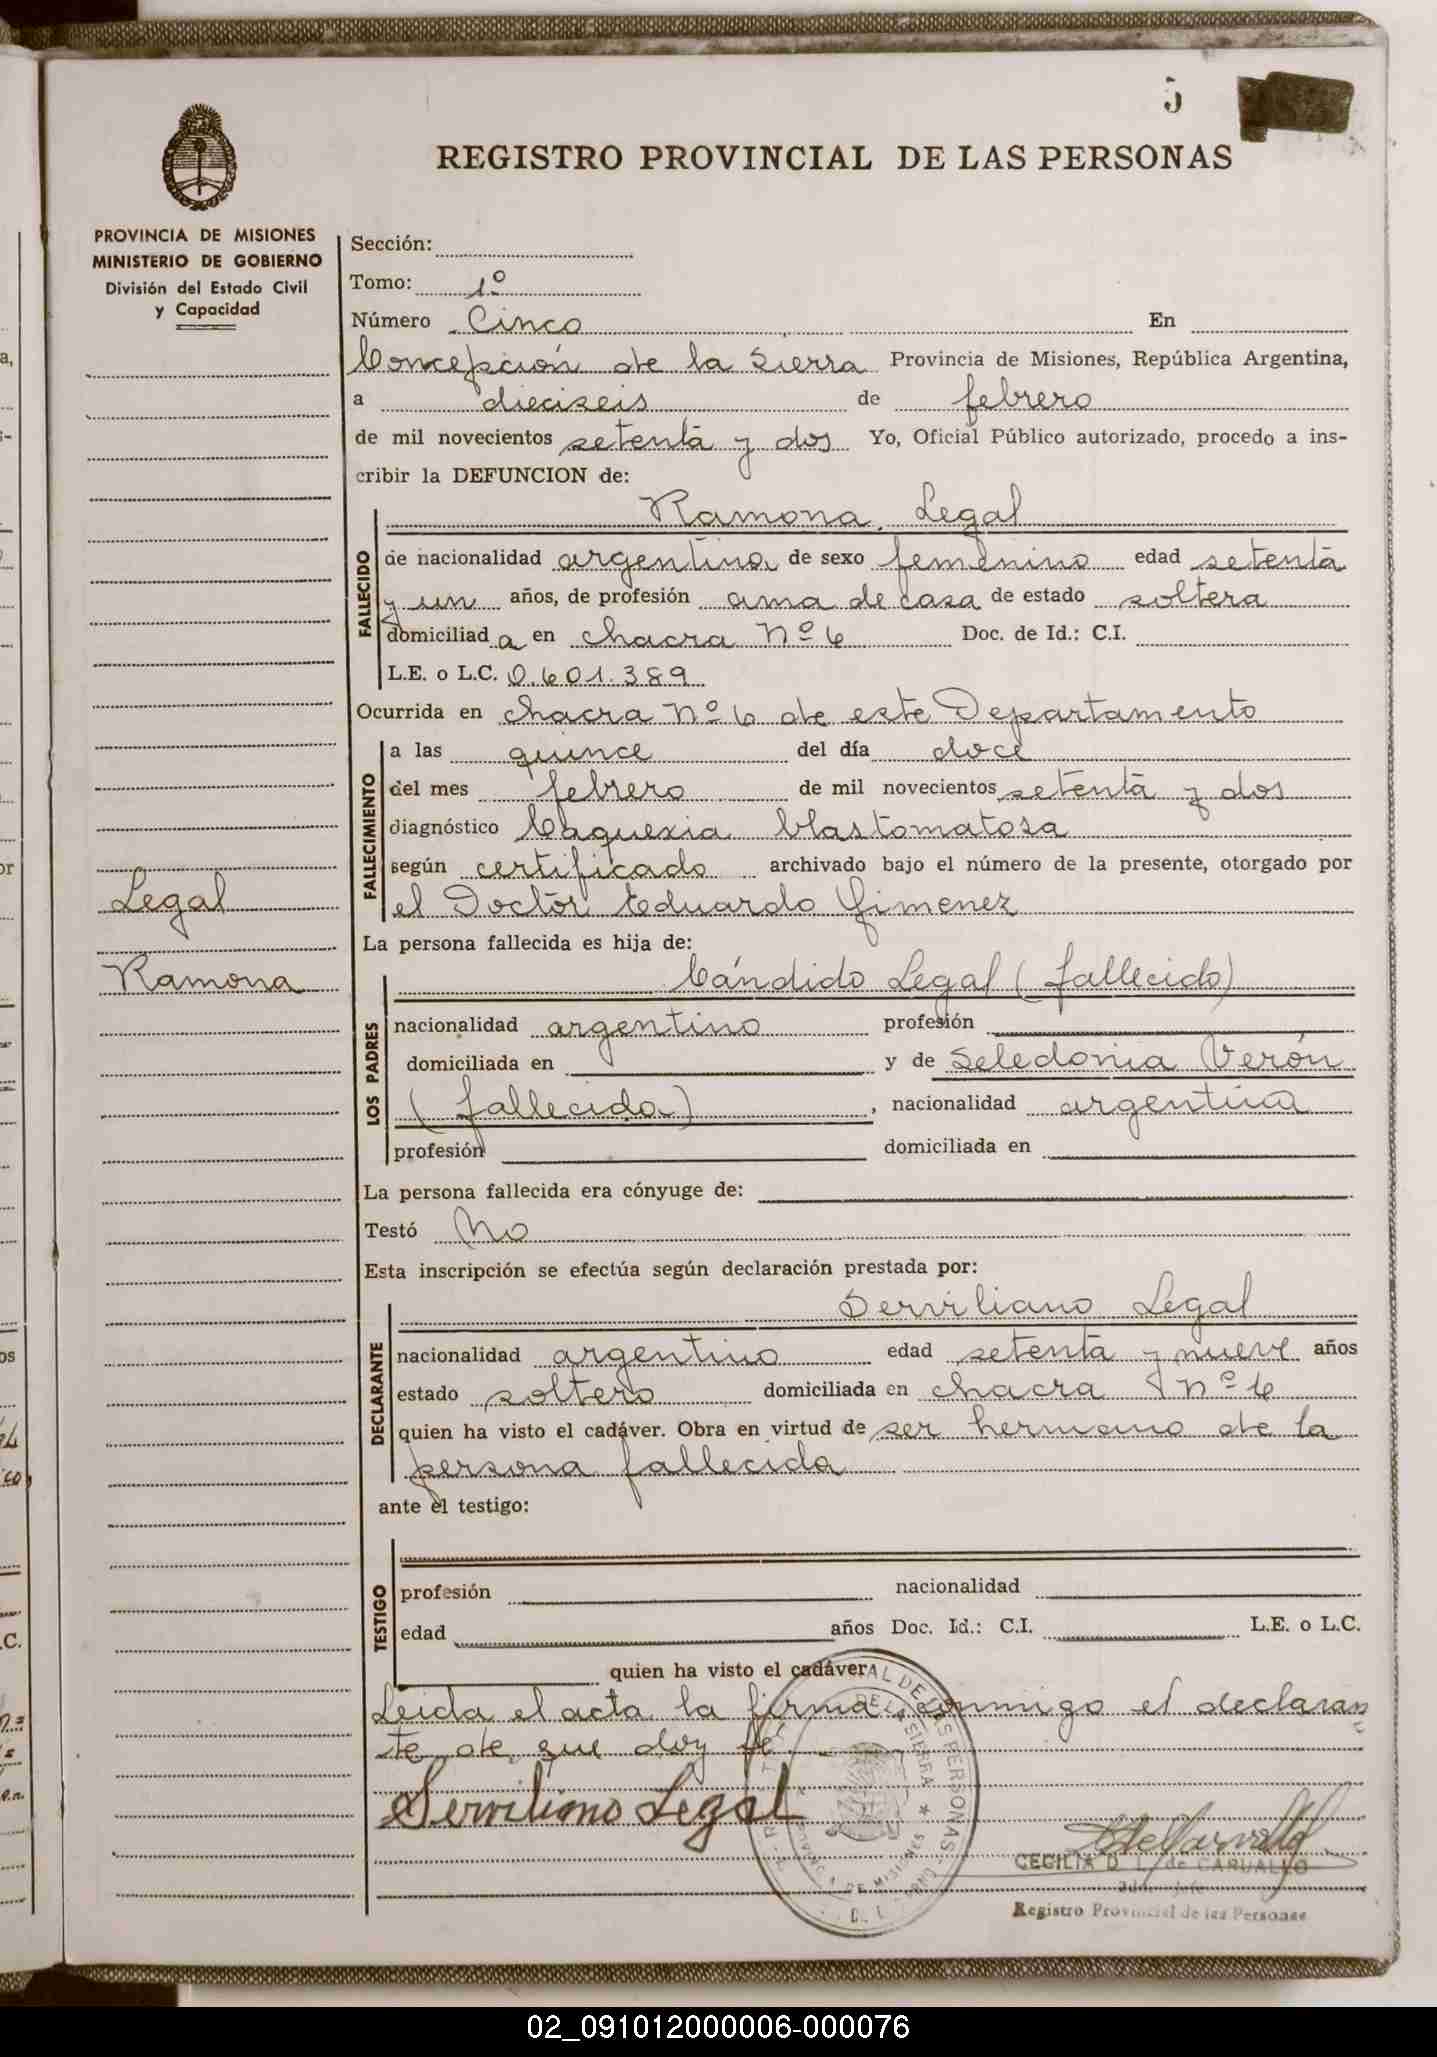 5
REGISTRO PROVINCIAL DE LAS PERSONAS
PROVINCIA DE MISIONES
MINISTERIO DE GOBIERNO
División del Estado Civil
y Capacidad
Legal
Ramona
Sección:
Tomo: 1º
Número Cinco En
Concepción de la Sierra Provincia de Misiones, República Argentina,
a dieciseis de febrero
de mil novecientos setenta y dos Yo, Oficial Público autorizado, procedo a ins-
cribir la DEFUNCION de:
Ramona Legal
FALLECIDO
de nacionalidad argentina de sexo femenino edad setenta
y un años, de profesión ama de casa de estado soltera
domiciliada en chacra Nº 6 Doc. de Id.: C.I.
L.E. o L.C. 0.601.389
Ocurrida en chacra Nº 6 de este Departamento
FALLECIMIENTO
a las quince del día doce
del mes febrero de mil novecientos setenta y dos
diagnóstico Caquexia blastomatosa
según certificado archivado bajo el número de la presente, otorgado por
el Doctor Eduardo Gimenez
La persona fallecida es hija de:
LOS PADRES
Cándido Legal (fallecido)
nacionalidad argentino profesión
domiciliada en y de Seledonia Verón
(fallecida), nacionalidad argentina
profesión domiciliada en
La persona fallecida era cónyuge de:
Testó No
Esta inscripción se efectúa según declaración prestada por:
DECLARANTE
Serviliano Legal
nacionalidad argentino edad setenta y nueve años
estado soltero domiciliada en chacra Nº 6
quien ha visto el cadáver. Obra en virtud de ser hermano de la
persona fallecida
ante el testigo:
TESTIGO
profesión nacionalidad
edad años Doc. Id.: C.I. L.E. o L.C.
quien ha visto el cadáver
Leida el acta la firma conmigo el declaran
te de que doy fé
Serviliano Legal
CECILIA D. L. de CARVALLO
Registro Provincial de las Personas
02_091012000006-000076